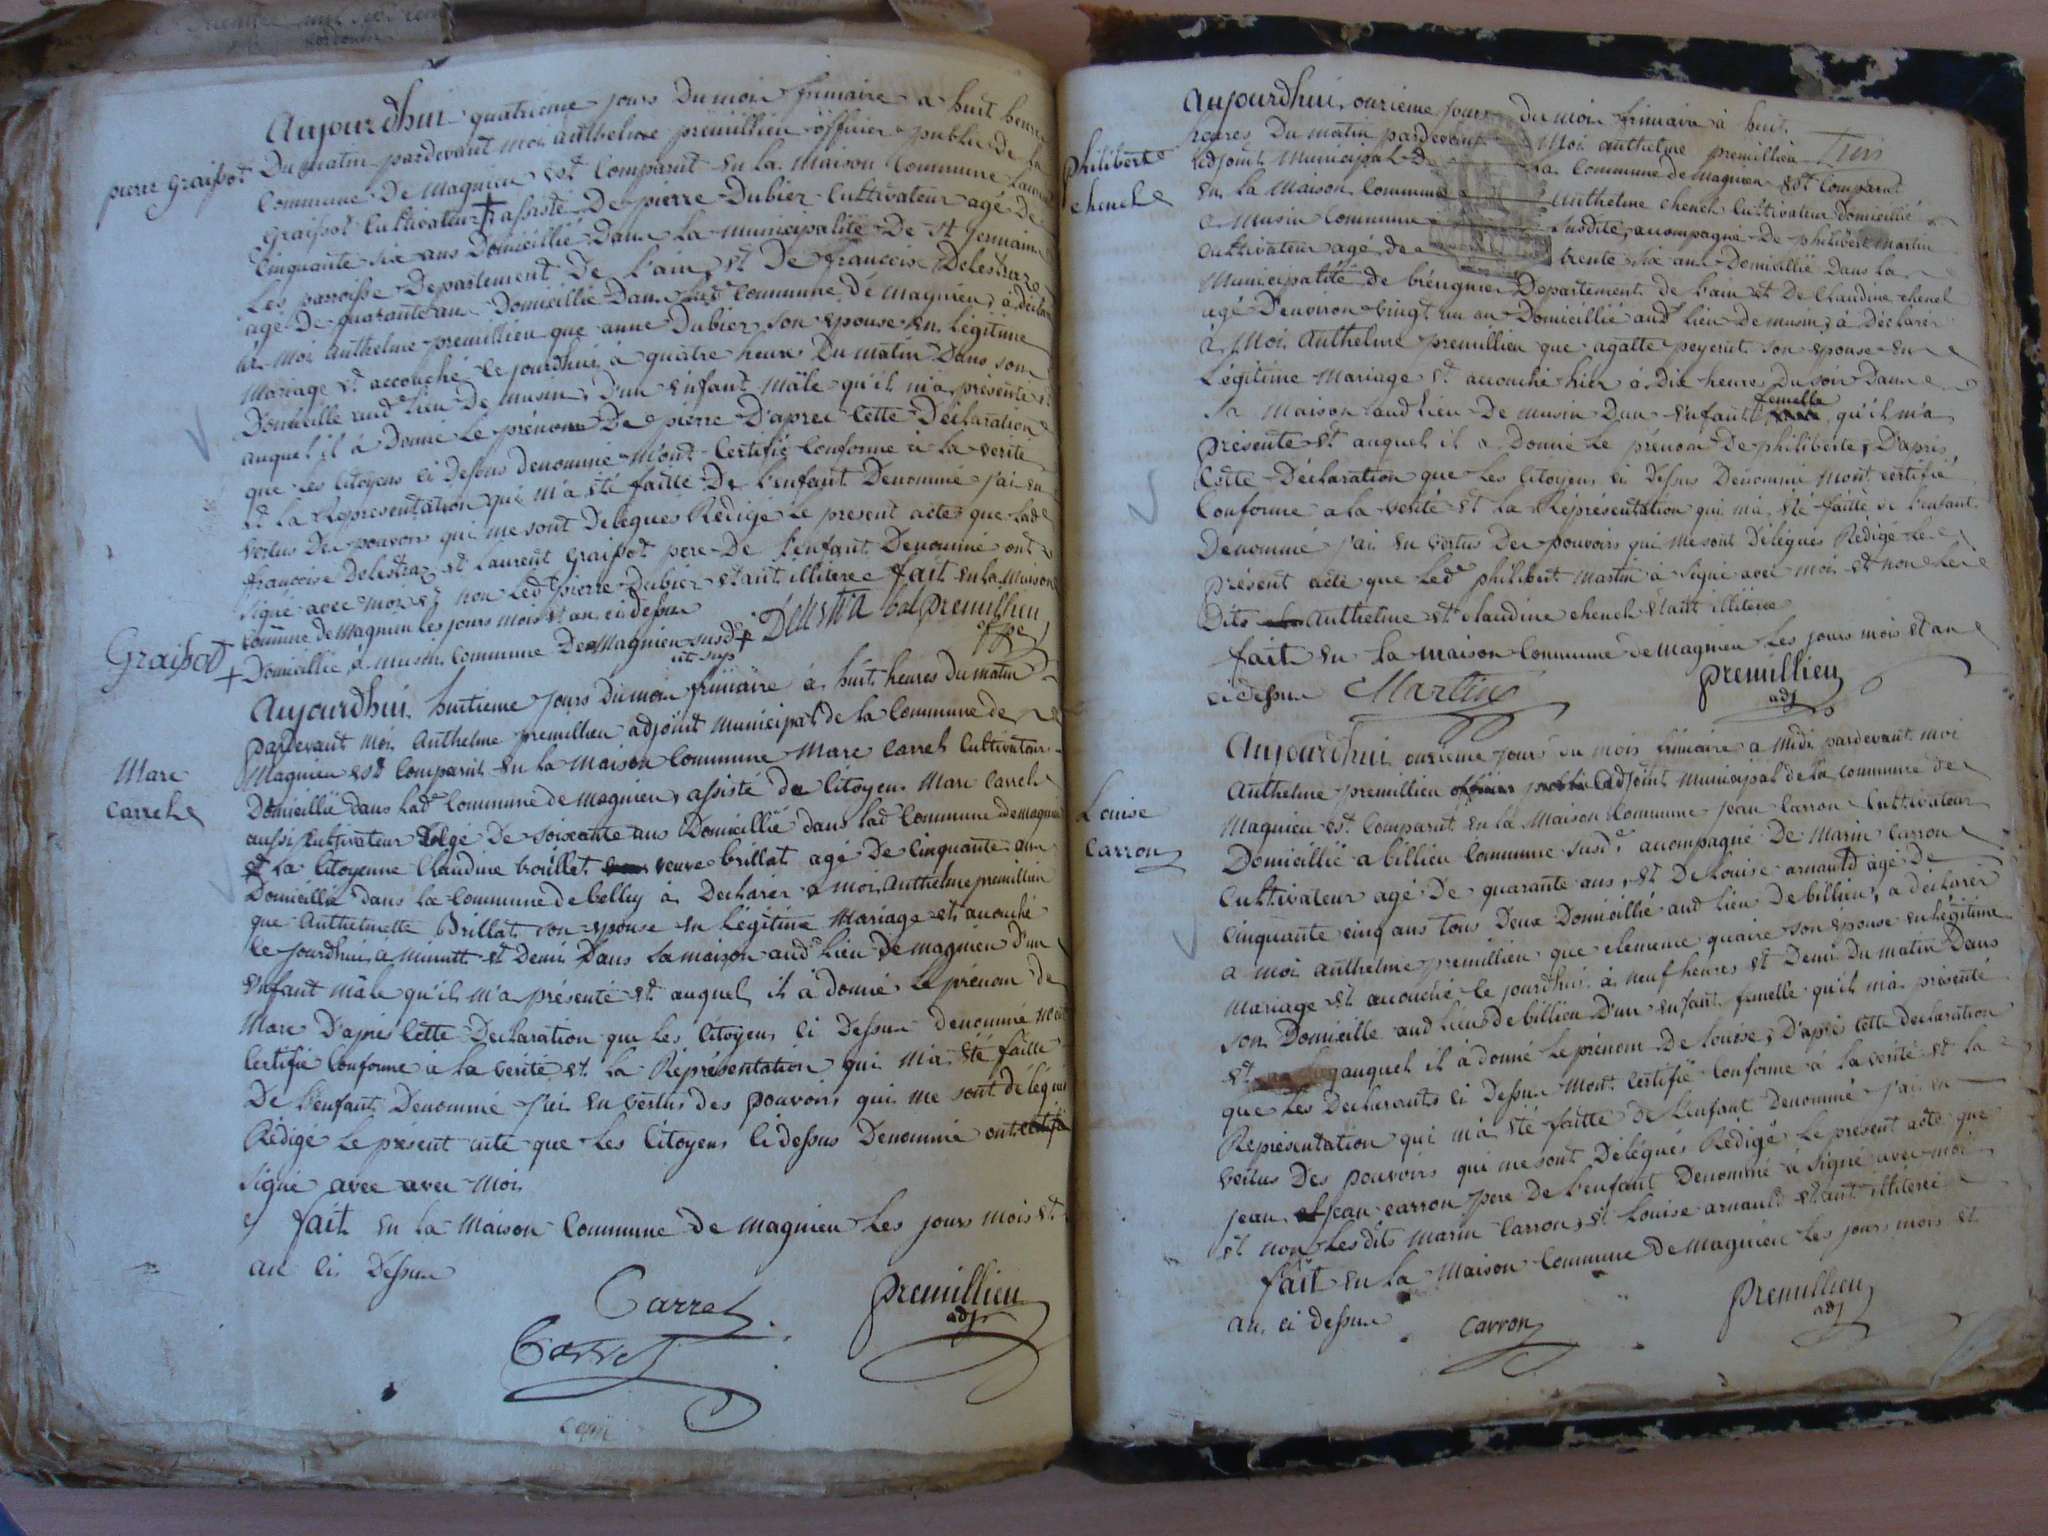 pierre Graissot
Aujourdhui quatrieme jours Du mois frimaire a huit heures
Du matin pardevant moi anthelme premillieu officier public de la
Commune De magnieu est Comparut en la maison Commune Laurent
Graissot Cultivateur + assisté De pierre Dubier Cultivateur agé De
Cinquante six ans Domicillié Dans La municipalité De St Germain
Les parroisse Departement De l'ain, et De francoise Delestraz
agé De quarante an Domicillié Dans lad commune De magnieu, à déclaré
à moi anthelme premillieu que anne Dubier son epouse en Légitime
mariage et accouché le jourdhui à quatre heures Du matin Dans son
Domicille aud lieu De musin, D'un enfant mâle qu'il m'a présenté et
auquel il à Donné Le prénom De pierre D'apres Cette Déclaration
que les Citoyens ci Dessus denommé m'ont Certifié Conforme à la verité
et la Representation qui m'a été faitte De l'enfant Denommé j'ai en
vertus Des pouvoirs qui me sont Délégués Rédigé Le present acte que lad
francoise Delestraz et Laurent Graissot pere De l'enfant Denommé ont
signé avec moi et non led pierre Dubier etant illiteré fait en la maison
Commune de magnieu les jours mois et an ci dessus
Graissot
+ Domicillié à musin Commune De magnieu susd +
Delestra
premillieu
Marc
Carrel
Aujourdhui huitieme jours Du mois frimaire à huit heures du matin
pardevant moi Anthelme premillieu adjoint municipal de la Commune de
Magnieu est Comparut en la maison Commune Marc Carrel Cultivateur
Domicillié dans lad Commune de magnieu, assisté du Citoyen Marc Carrel
aussi Cultivateur agé De soixante ans Domicillié dans lad Commune de magnieu
et La Citoyenne Claudine trouillet veuve brillat agé De Cinquante ans
Domicillié dans la Commune de belley à Declarer a moi Anthelme premillieu
que Anthelmette Brillat son epouse en Légitime Mariage et accouché
le jourdhui à minuit et Demi Dans la maison aud lieu De magnieu D'un
enfant mâle qu'il m'a présenté et auquel il à donné Le prénom de
Marc D'apres Cette Declaration que Les Citoyens ci Dessus denommé m'ont
Certifié Conforme à la verité et la Représentation qui m'a été faitte
De l'enfant Denommé J'ai en vertus des pouvoirs qui me sont délégués
Rédigé Le présent acte que Les Citoyens ci dessus Denommé ont
signé avec avec moi
fait en la maison Commune De magnieu Les jours mois et
an ci Dessus
Carrel
premillieu
adj
Carrel
philiberte
chenel
Aujourdhui onzieme jours du mois frimaire à huit
heures Du matin pardevant Moi anthelme premillieu
adjoint Municipal De La Commune de magnieu est Comparut
en la maison Commune Anthelme chenel Cultivateur domicillié
a musin Commune susdite, accompagné De philibert martin
cultivateur agé de trente six ans Domicillié Dans la
Municipalité de brégnier Departement de l'ain et De Claudine chenel
agé D'environ vingt un an Domicillié aud lieu de musin, à déclarér
à Moi Anthelme premillieu que agatte peyerut son epouse en
Légitime Mariage et accouché hier à Dix heures Du soir Dans
sa maison aud lieu De musin D'un enfant femelle qu'il m'a
présenté et auquel il a Donné Le prénom De philiberte, D'après
Cette Déclaration que Les Citoyens ci Dessus Dénommé m'ont certifié
Conforme a la verité et la Réprésentation qui m'a été faitte de l'enfant
Denommé j'ai en vertus Des pouvoirs qui me sont Délégués Rédigé Le
présent acte que Led philibert Martin à signé avec moi et non Les
Dits Anthelme et Claudine chenel etant illiteré
fait en la maison Commune de magnieu Les jours mois et an
ci dessus
Martin
premillieu
adj
Louise
Carron
Aujourdhui onzieme jour du mois frimaire a midi pardevant moi
Anthelme premillieu officier public adjoint municipal de la commune de
Magnieu est Comparut en la Maison Commune Jean Carron Cultivateur
Domicillié a billieu Commune susd accompagné De Marin Carron
Cultivateur agé De quarante ans, et De Louise arnauld agé De
cinquante cinq ans tous Deux Domicillié aud lieu De billieu, a déclarér
a moi anthelme premillieu que clemence quaire son epouse en légitime
Mariage et accouché le jourdhui à neuf heures et Demi Du matin Dans
son Domicille aud lieu De billieu D'un enfant femelle qu'il m'a présenté
et auquel il à donné Le prénom De Louise, D'après cette declaration
que Les Declarants ci Dessus m'ont Certifié Conforme à la verité et la
Représentation qui m'a été faitte de l'enfant Denommé j'ai en
vertus Des pouvoirs qui me sont Délégués Rédigé Le present acte que
jean jean carron pere De l'enfant Denommé à signé avec moi
et non Les Dits marin Carron, et Louise arnauld etant illiteré
fait en la Maison Commune De Magnieu Les jours mois et
an ci dessus
Carron
premillieu
adj